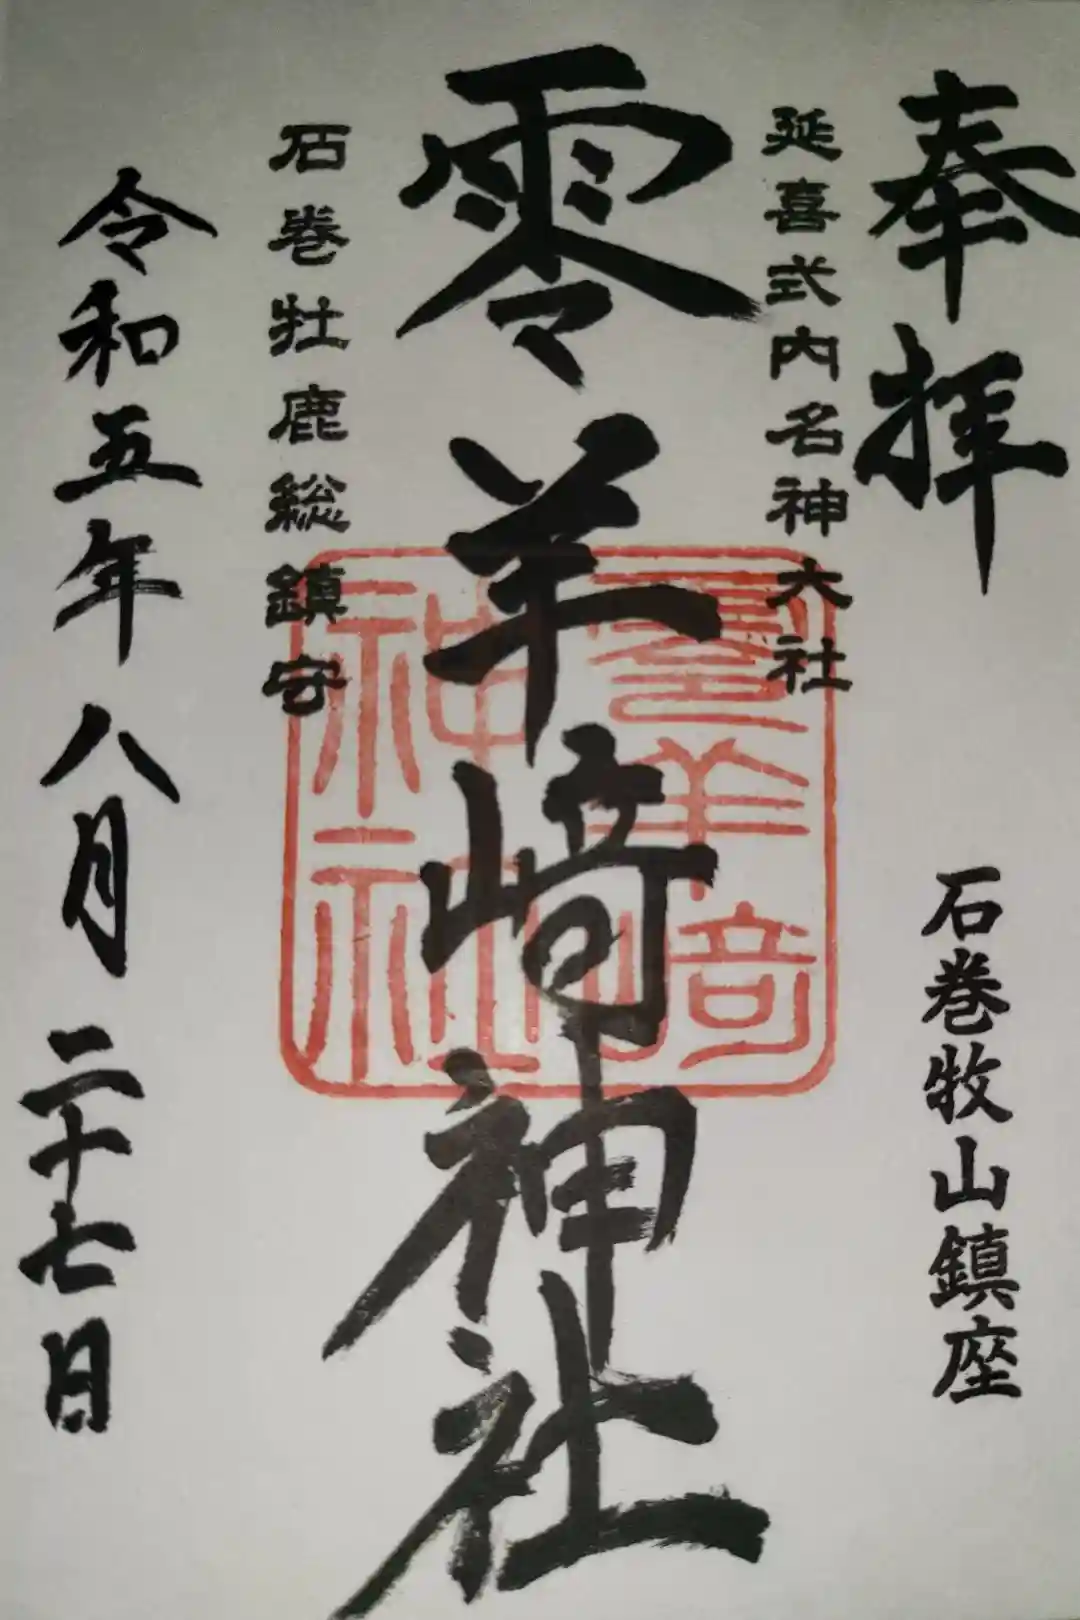 奉拝
石巻牧山鎮座
延喜式内名神大社
零羊崎神社
零羊崎
神社
石巻牡鹿総鎮守
令和五年八月二十七日